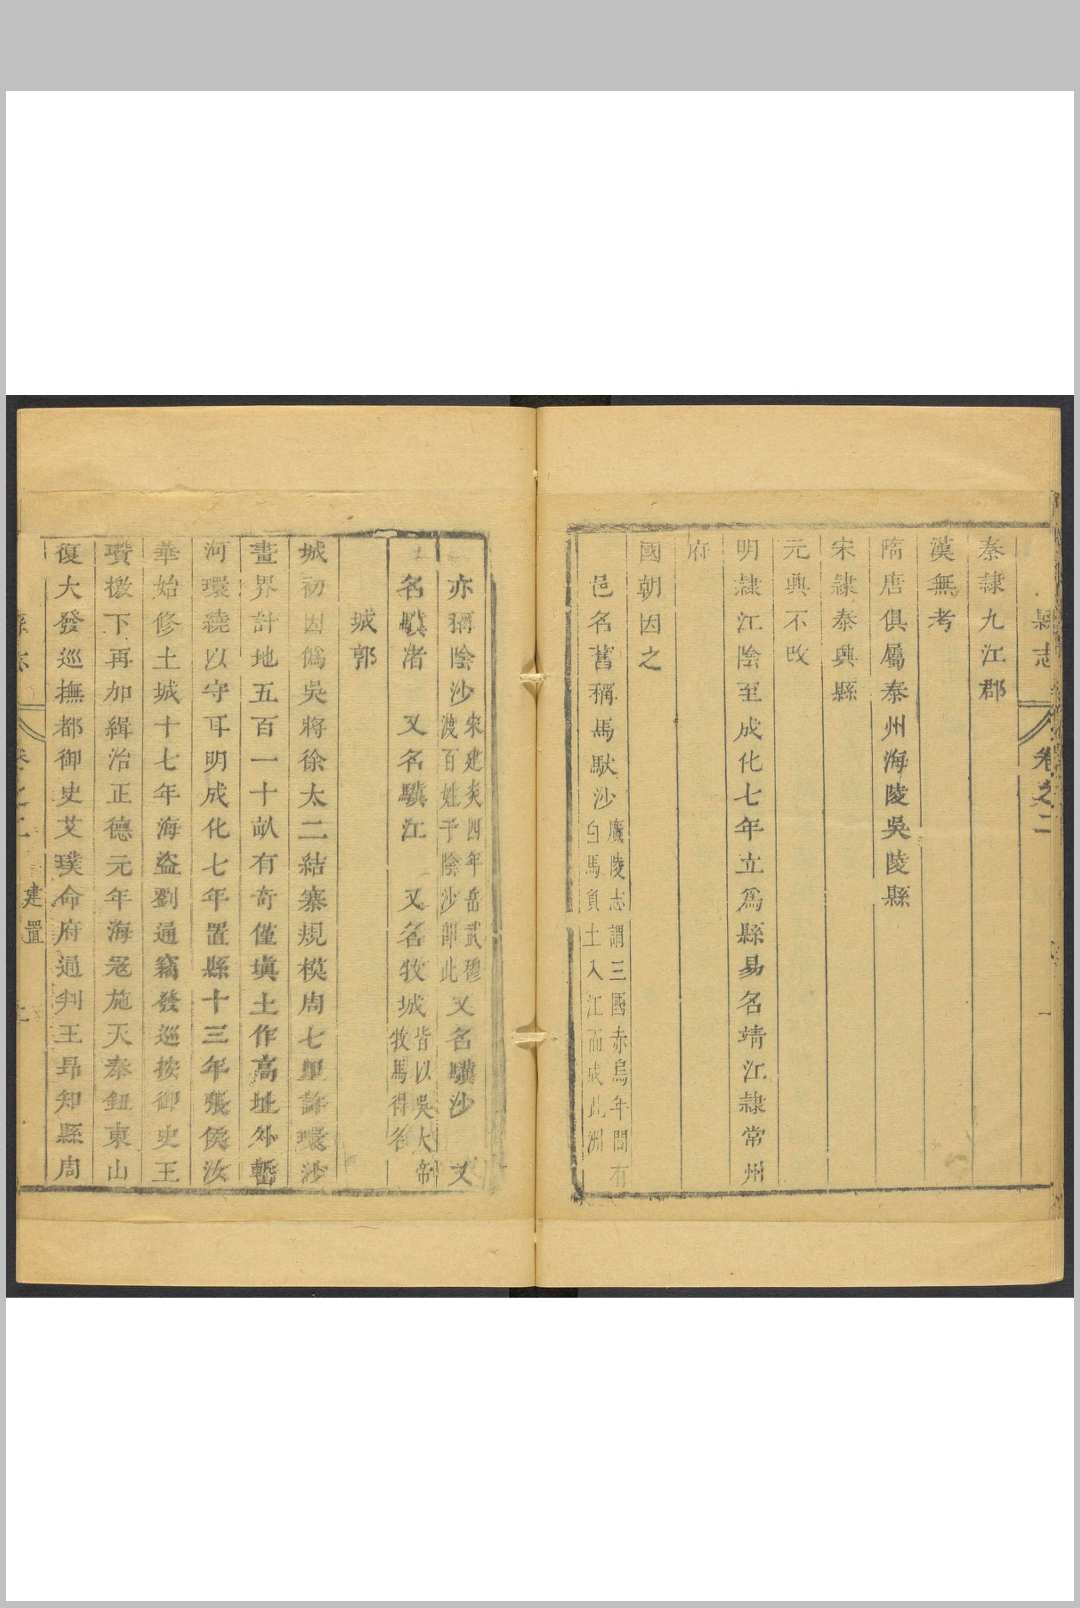 縣志
卷之二
秦隷九江郡
漢無考
隋唐俱屬泰州海陵吳陵縣
宋隷泰興縣
元興不改
明隷江陰至成化七年立爲縣易名靖江隷常州
府
國朝因之
邑名舊稱馬馱沙廣陵志謂三國赤烏年間有
白馬負土入江而成此洲
亦稱陰沙宋建炎四年岳武穆
渡百姓于陰沙卽此又名驥沙 又
名驥渚 又名驥江 又名牧城皆以吳大帝
牧馬得名
城郭
城初因僞吳將徐太二結寨規模周七里許環沙
畫界計地五百一十畝有奇僅塡土作高址外塹
河環繞以守耳明成化七年置縣十三年張侯汝
華始修土城十七年海盜劉通竊發巡按御史王
瓚檄下再加緝治正德元年海寇施天泰鈕東山
復大發巡撫都御史艾璞命府通判王昻知縣周
縣志
卷之二
建置